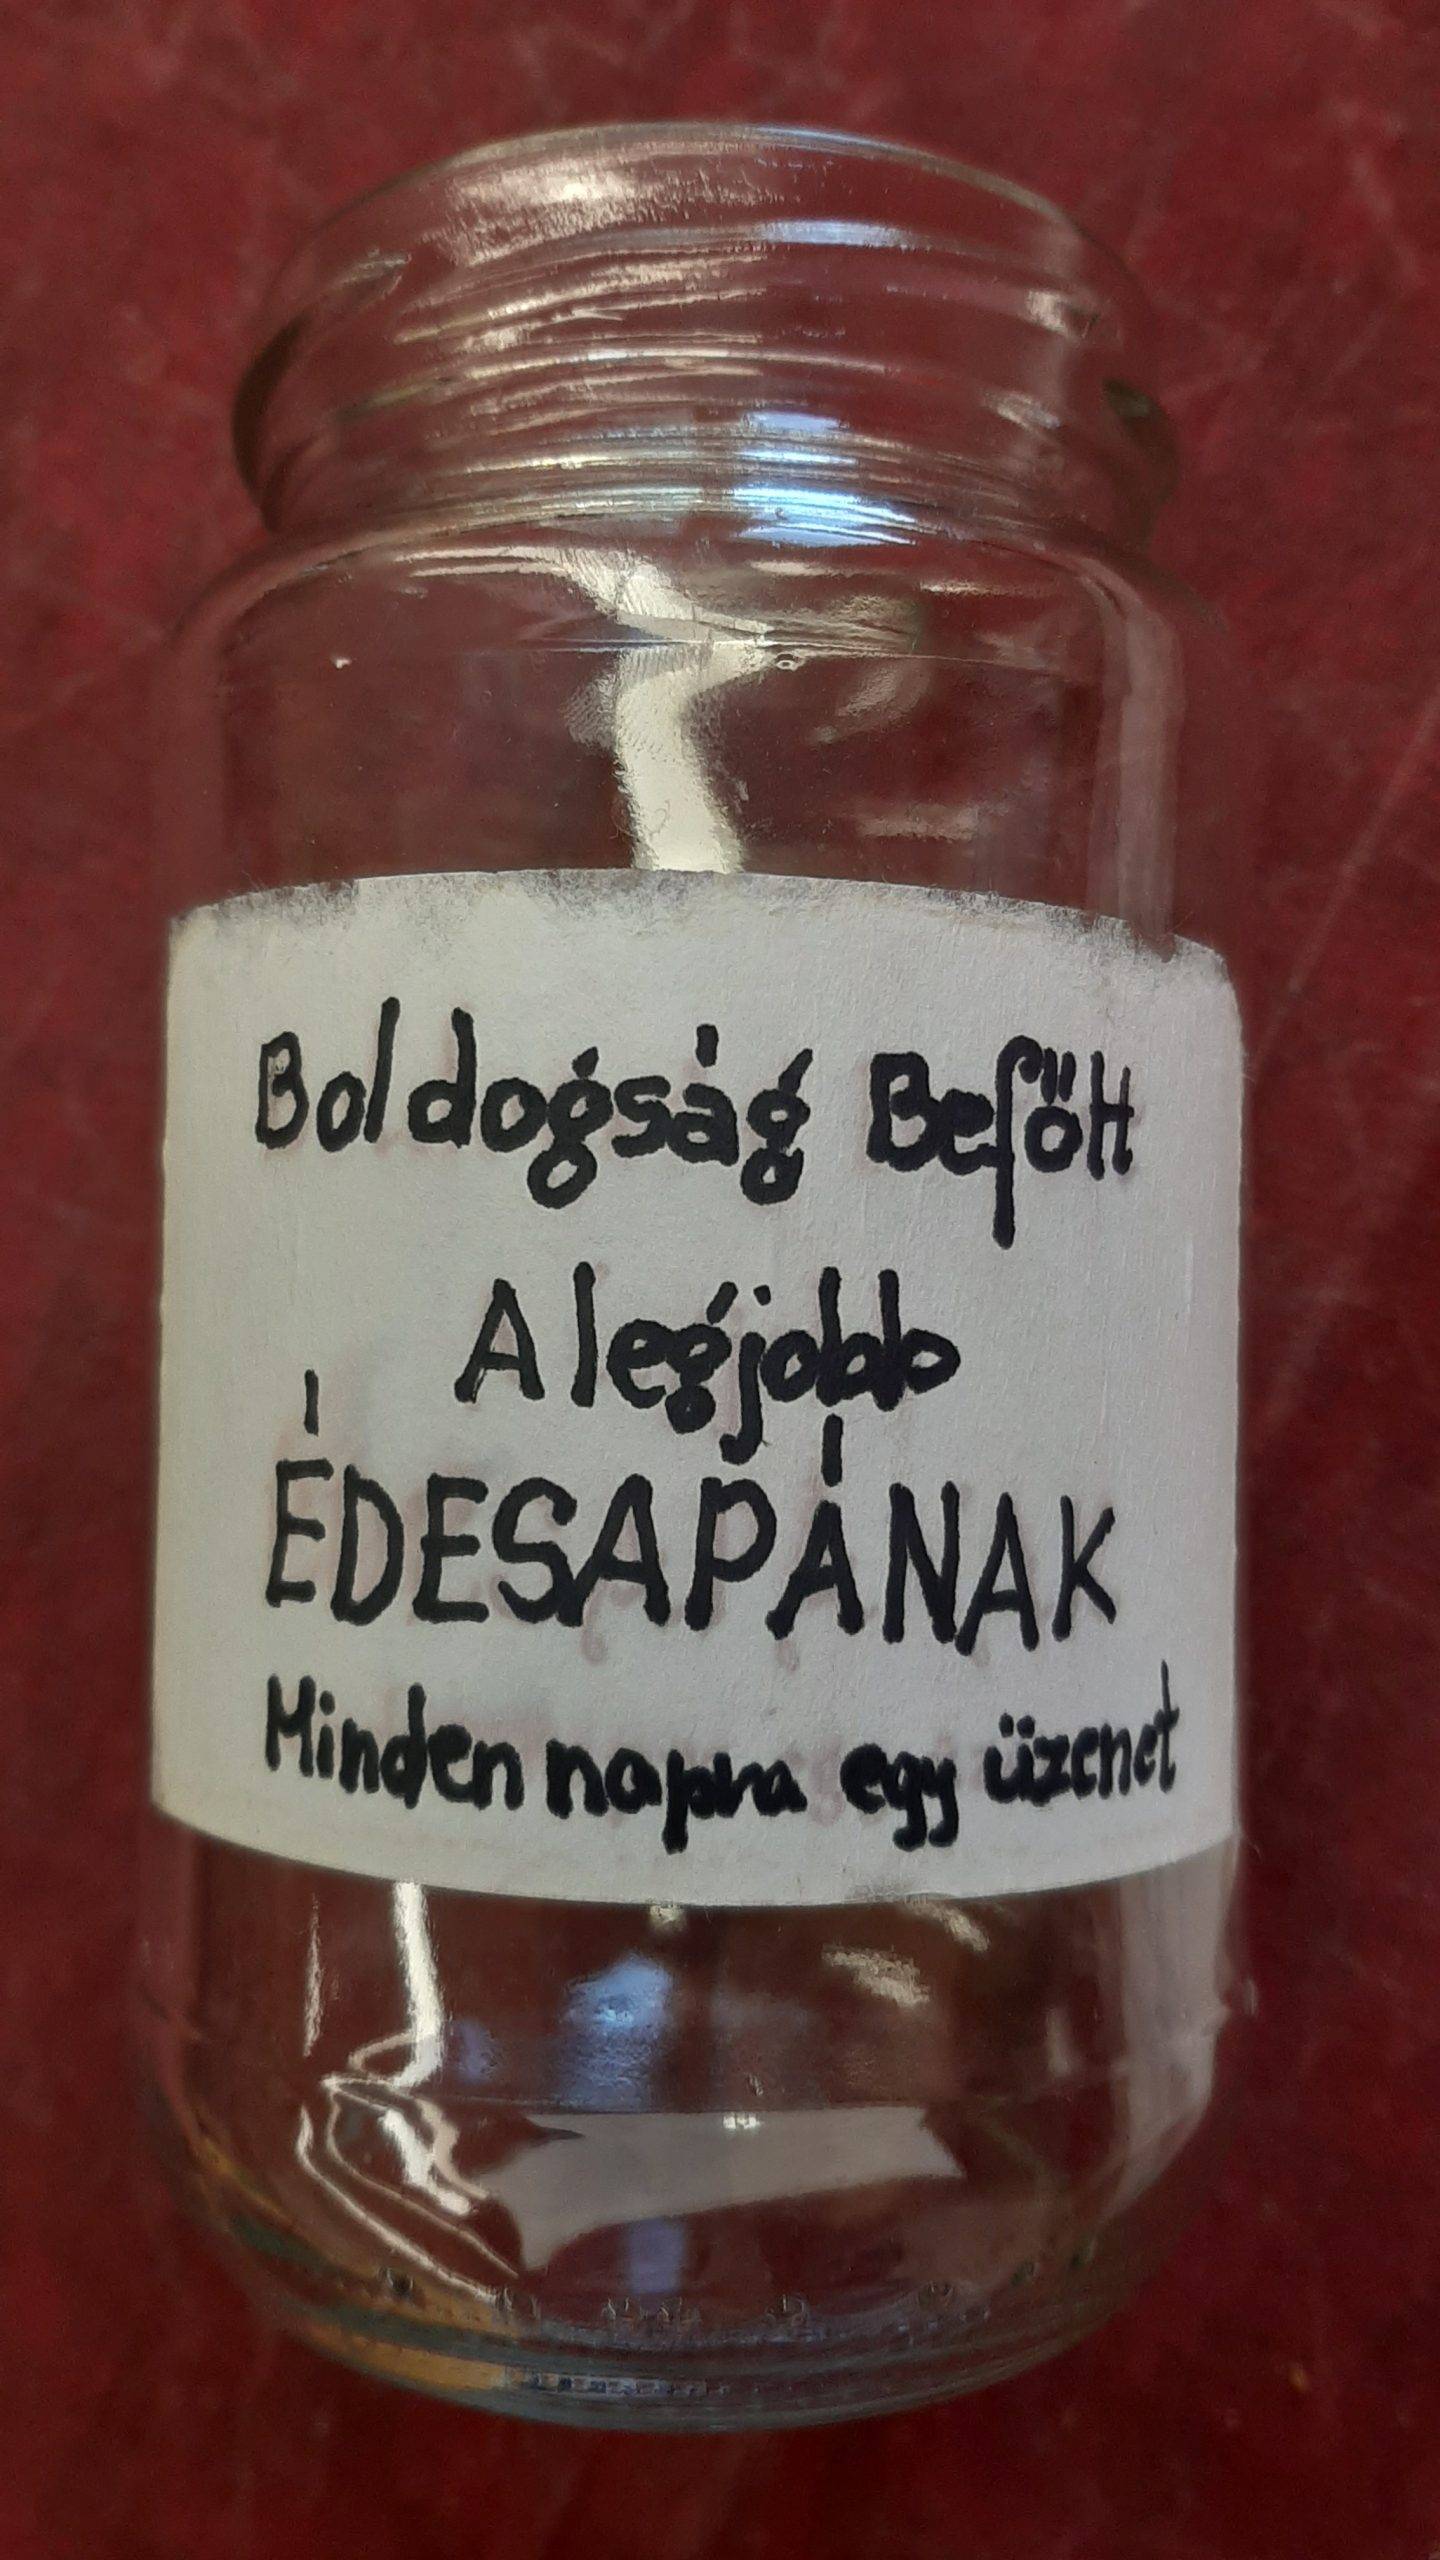 Boldogság Befőtt
A legjobb
ÉDESAPÁNAK
Minden napra egy üzenet